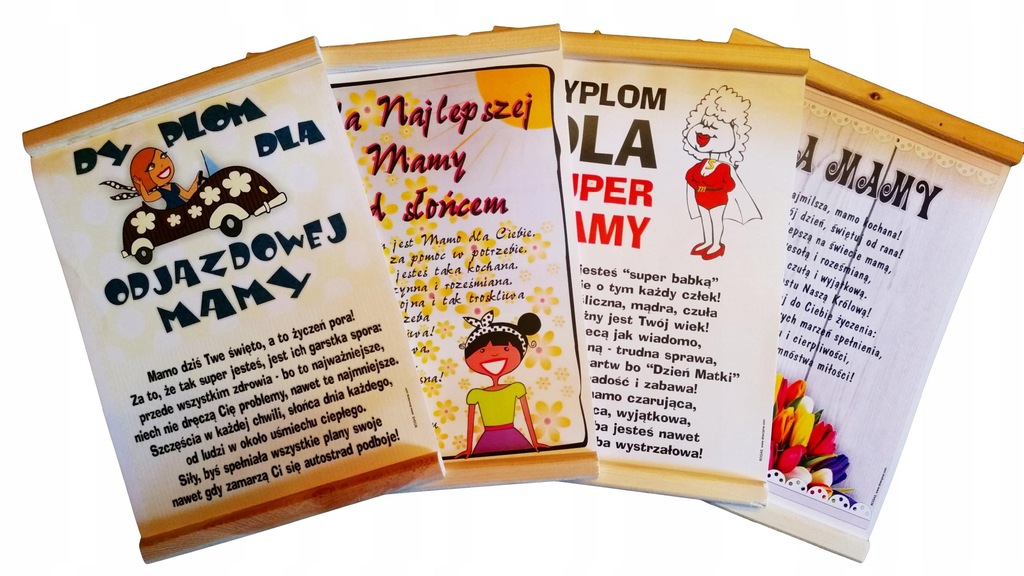 DYPLOM DLA
ODJAZDOWEJ
MAMY
Mamo dziś Twe święto, a to życzeń pora!
Za to, że tak super jesteś, jest ich garstka spora:
przede wszystkim zdrowia - bo to najważniejsze,
niech nie dręczą Cię problemy, nawet te najmniejsze.
Szczęścia w każdej chwili, słońca dnia każdego,
od ludzi w około uśmiechu ciepłego.
Siły, byś spełniała wszystkie plany swoje
nawet gdy zamarzą Ci się autostrad podboje!
a Najlepszej
Mamy
d słońcem
jest Mamo dla Ciebie,
za pomoc w potrzebie.
jesteś taka kochana,
zynna i roześmiana.
ojna i tak troskliwa
zeba
wa!
sna!
YPLOM
DLA
UPER
AMY
jesteś "super babką"
ie o tym każdy człek!
śliczna, mądra, czuła
żny jest Twój wiek!
ecą jak wiadomo,
ną - trudna sprawa,
artw bo "Dzień Matki"
adość i zabawa!
mamo czarująca,
ca, wyjątkowa,
ba jesteś nawet
ba wystrzałowa!
A MAMY
ajmilsza, mamo kochana!
ój dzień, świętuj od rana!
lepszą na świecie mamą,
esołą i roześmianą,
czułą i wyjątkową.
stu Naszą Królową!
j do Ciebie życzenia:
ych marzeń spełnienia,
i cierpliwości,
mnóstwa miłości!